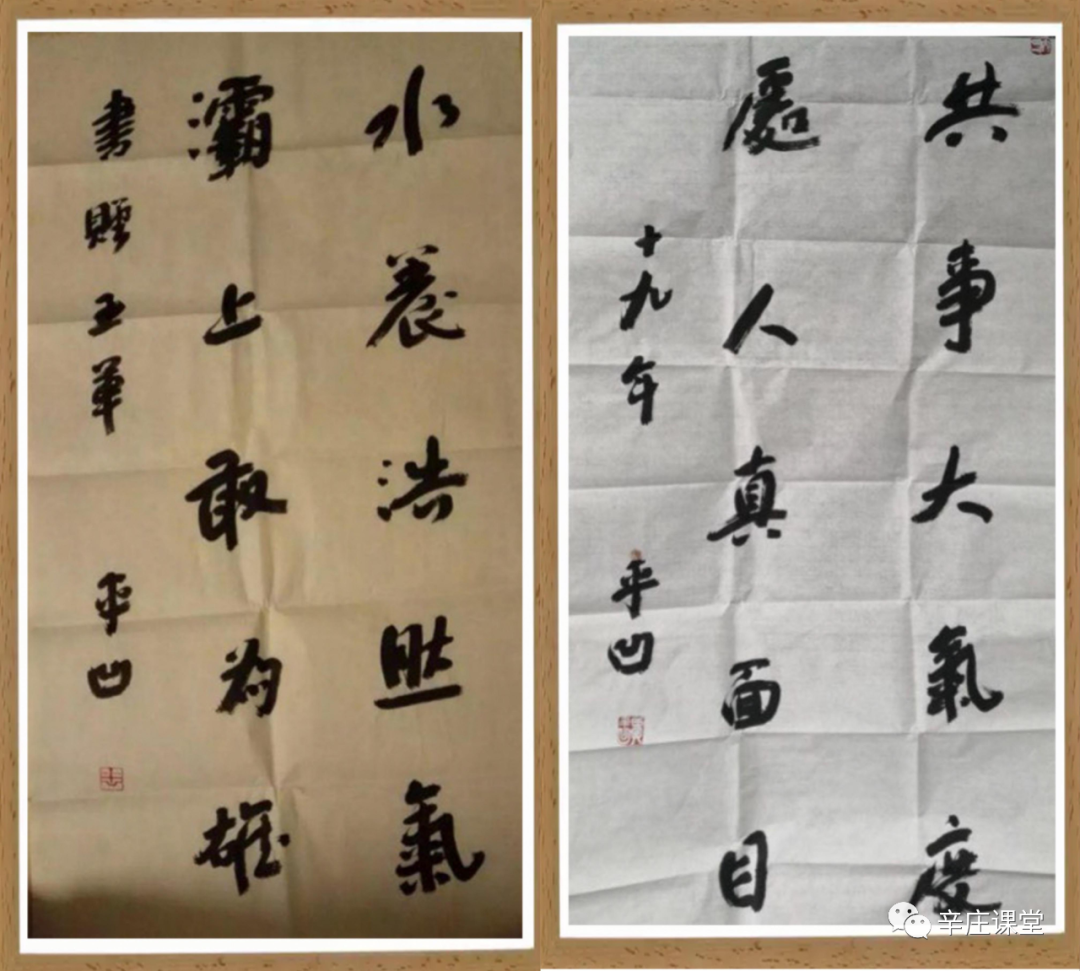 水養浩然氣
灞上敢為雄
書贈王華
平凹
共事大氣度
處人真面目
十九年
平凹
辛庄课堂